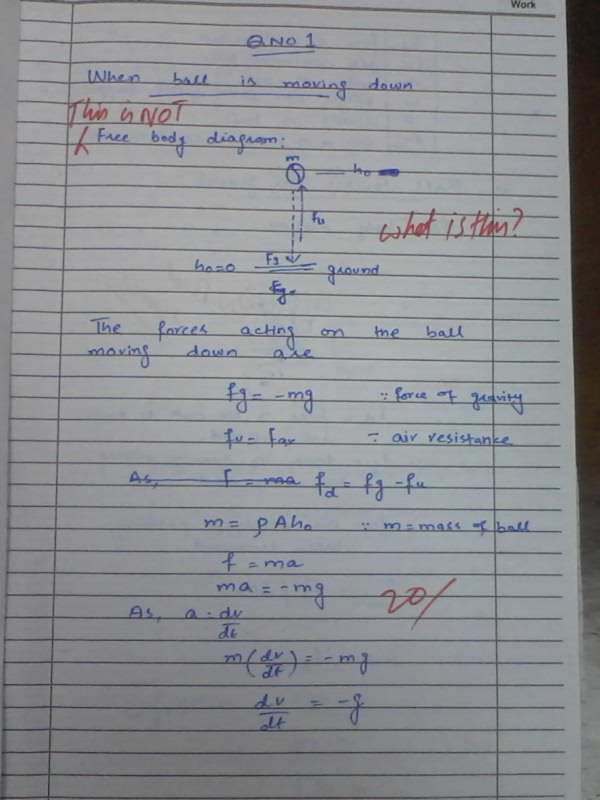 Work
Q NO 1
When ball is moving down
This is NOT
Free body diagram:
m
h₀
fu
what is this?
Fg
h₀=0 ground
Fg
The forces acting on the ball
moving down are
fg = -mg ∵ force of gravity
fu = far ∵ air resistance
As, f = ma fd = fg - fu
m = ρAh₀ ∵ m = mass of ball
f = ma
ma = -mg
20/
As, a = dv/dt
m(dv/dt) = -mg
dv/dt = -g